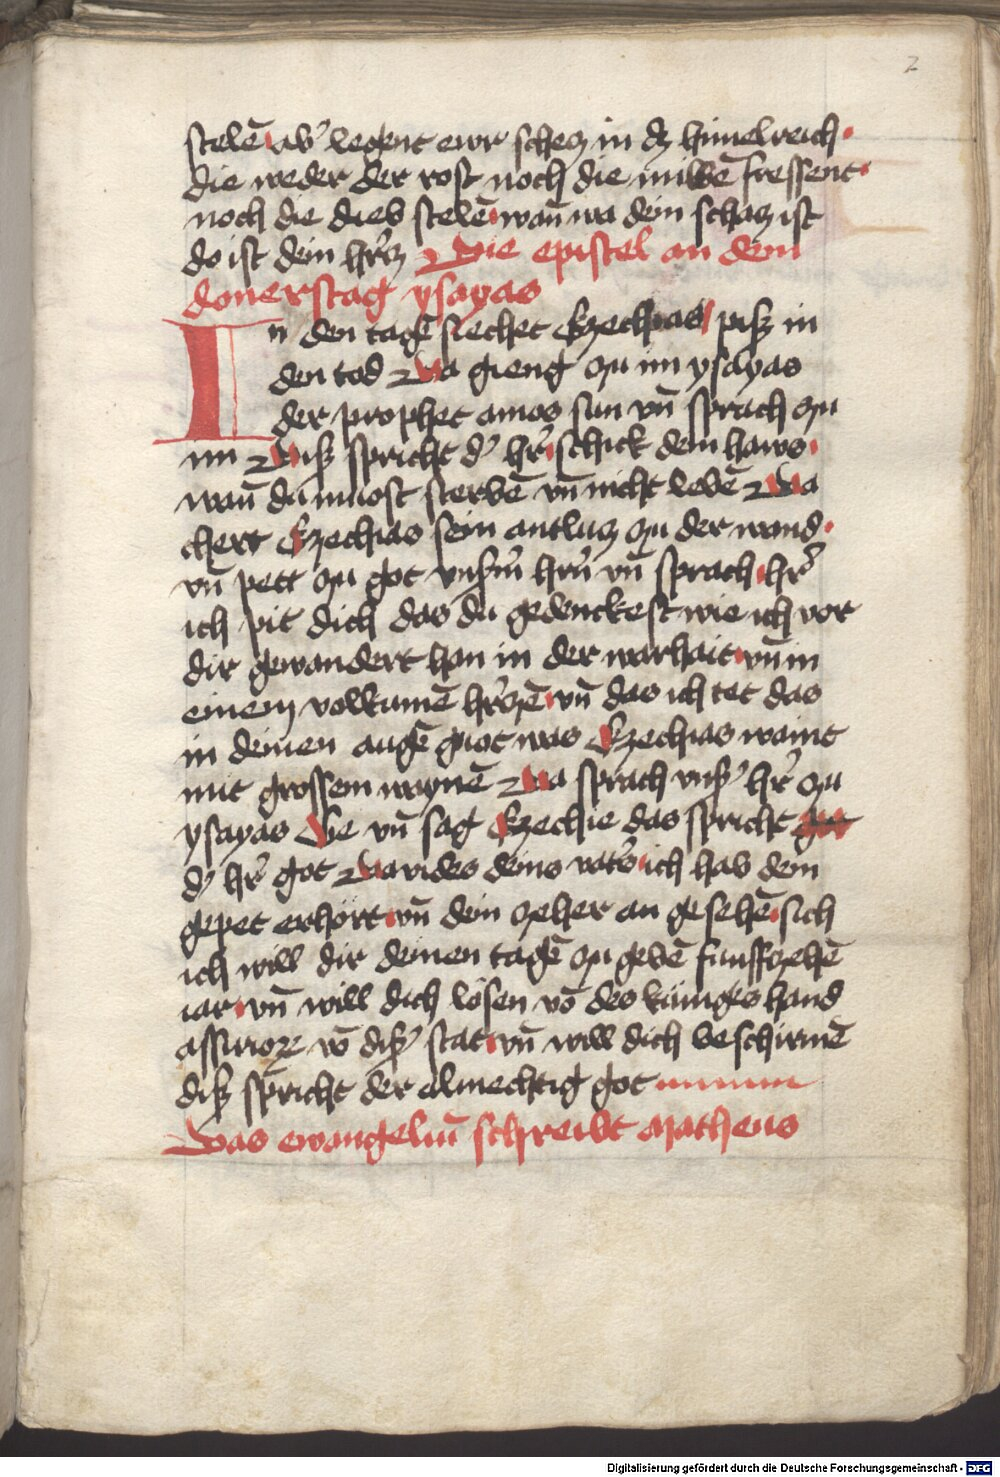 2
stelē avˀ legent ewr schecz in dz himelreich
die weder der rost noch die milbē fressent
noch die dieb stelē wañ wa dein schacz ist
do ist dein hˀrcz Die epistel an dem
donerstag ysayas
In den tagē siechet Ezechias piß in
den tod Da gieng zu im ysayas
der prophet amos sun vñ sprach zu
im Diß spricht dˀ hˀr schick dein haws
wañ du muost sterbē vñ nicht lebē Da
chert Ezechias sein antlucz zu der wand
vñ pett zu got vnßˀm hˀrn vñ sprach hˀr
ich pit dich das du gedenckest wie ich vor
dir gewandert han in der warhait vñ in
einem volkumē hˀrczē vñ das ich tet das
in deinen augē guot was Ezechias waint
mit grossem waynē Da sprach vnßˀ hˀr zu
ysayas Ge vñ sag Ezechie das spricht got
dˀ hˀr got Davides deins vatˀs ich hab dein
gepet erhört vñ dein zeher an gesehē sich
ich will dir deinen tagē zu gebē funffzehē
iar vñ will dich lösen vō des küniges hand
assirior vō dißˀ stat vñ will dich beschirmē
diß spricht der almechtig got
Das ewangeliū schreibt Matheus
Digitalisierung gefördert durch die Deutsche Forschungsgemeinschaft - DFG